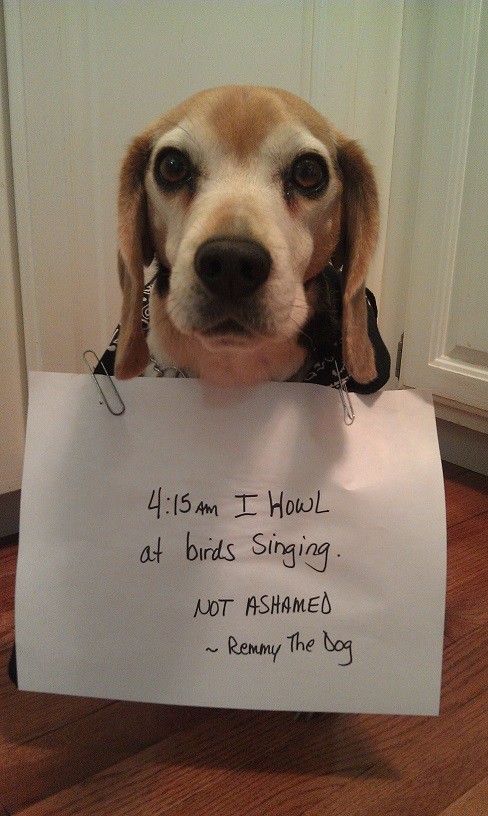 4:15 AM I HOWL
at birds Singing.
NOT ASHAMED
~ Remmy The Dog